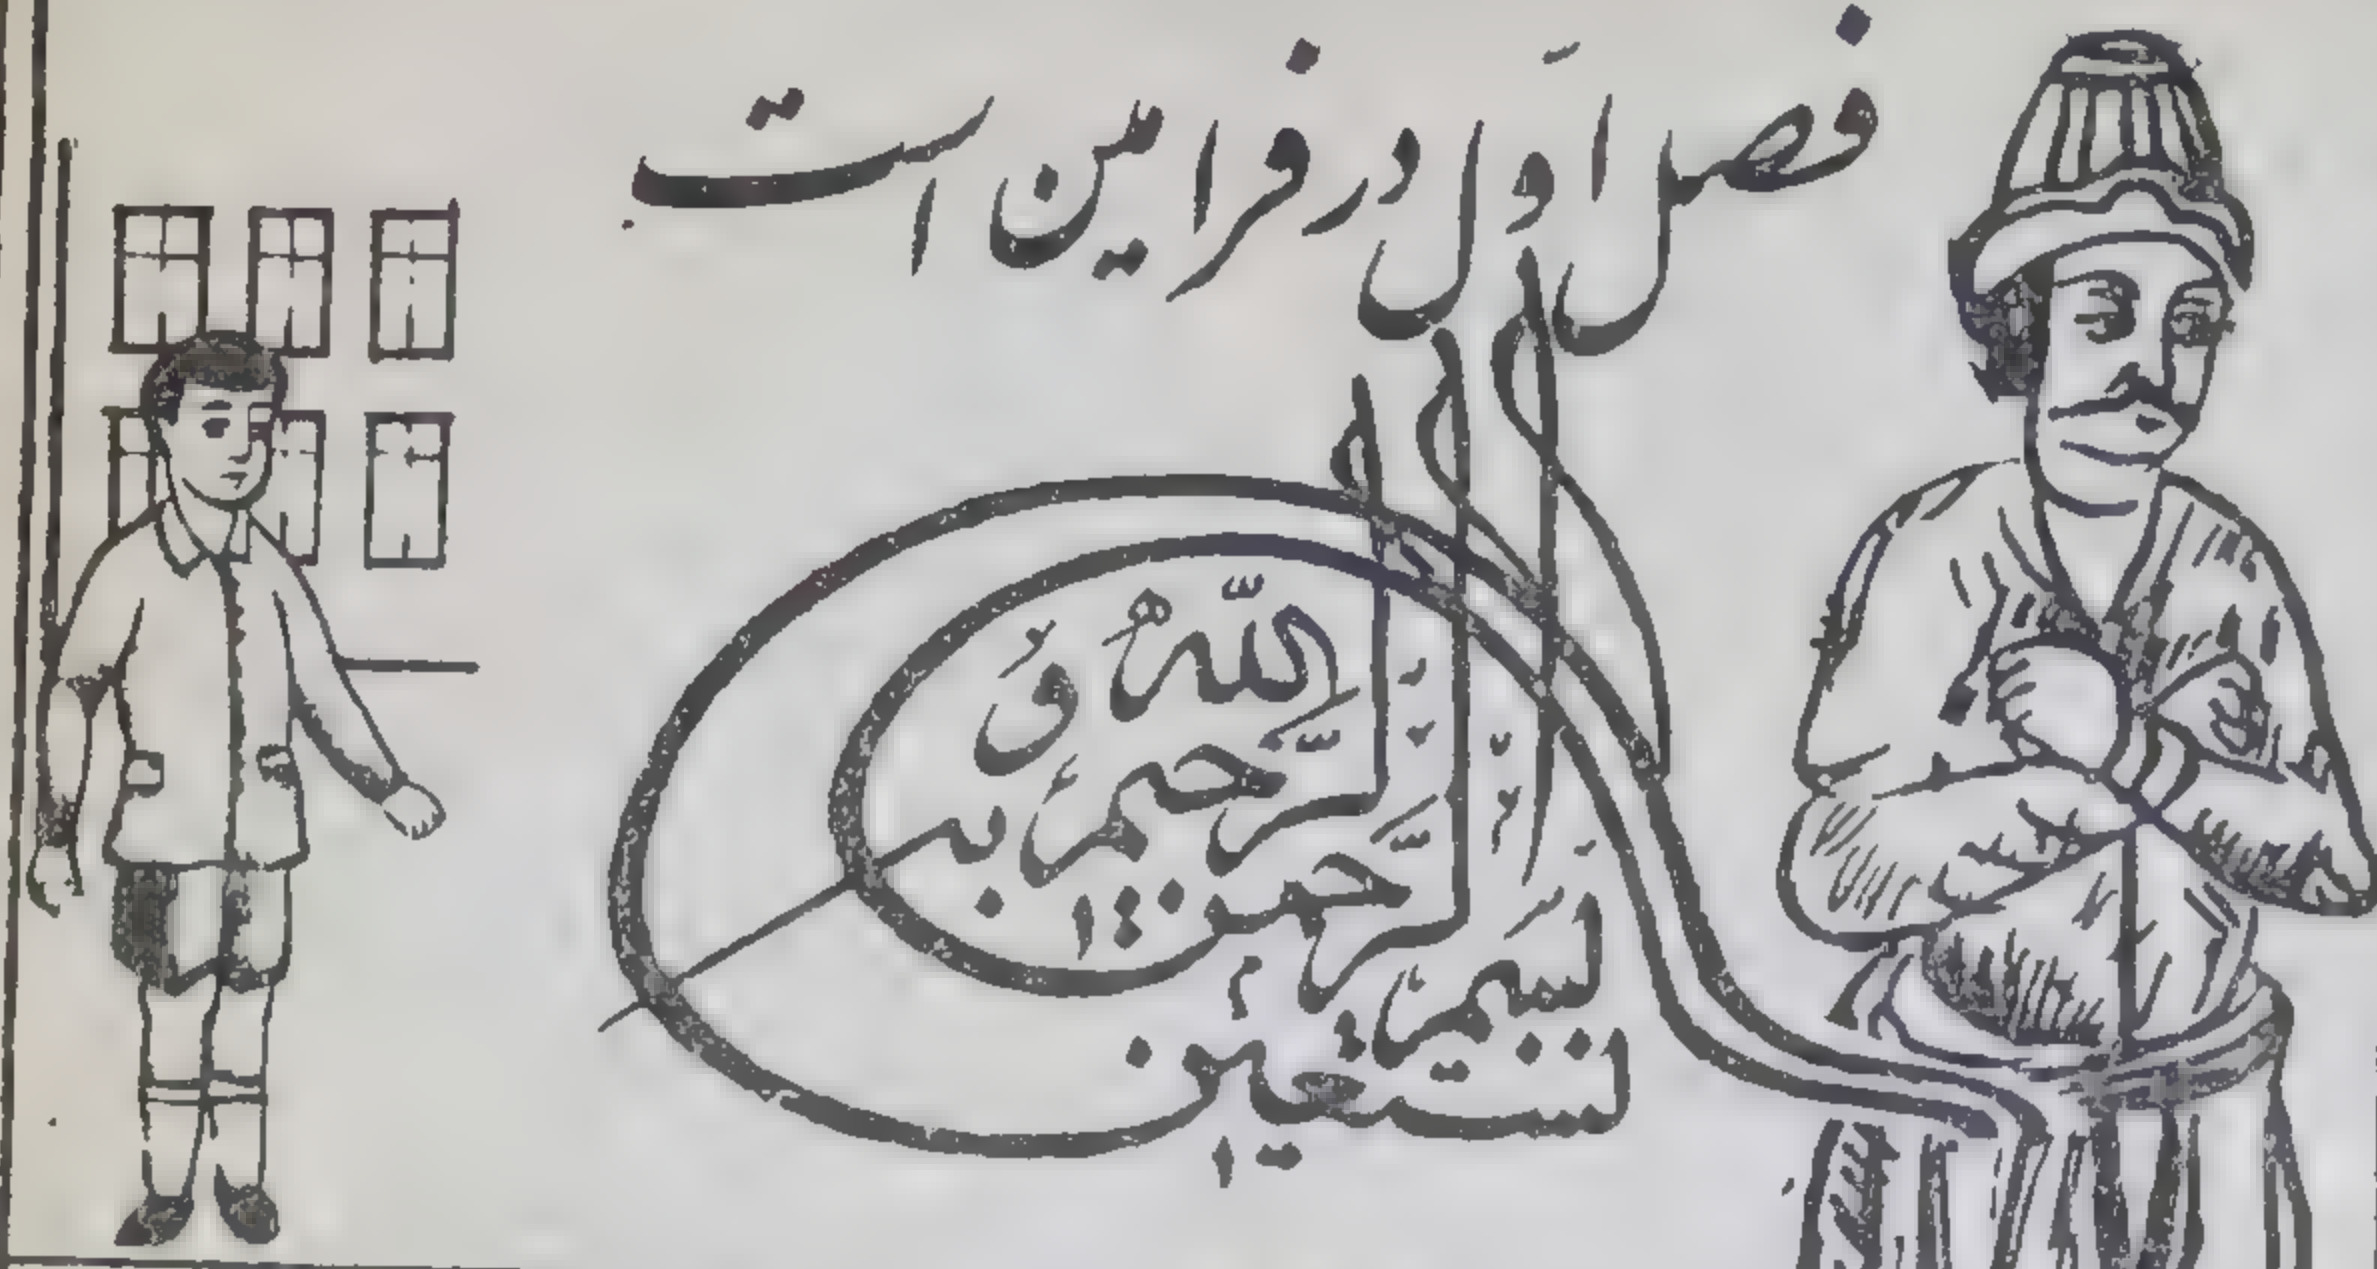 فصل اوّل در فرامین است
بسم اللّه الرّحمن الرّحیم و به نستعین